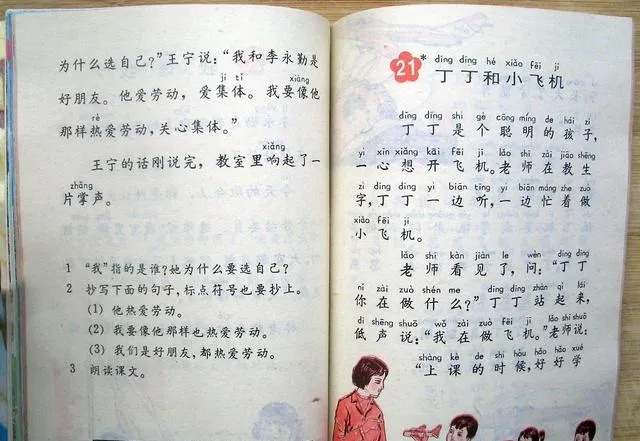 为什么选自己？”王宁说：“我和李永勤是
jí tǐ xiàng
好朋友。他爱劳动，爱集体。我要像他
rè
那样热爱劳动，关心集体。”
xiǎng
王宁的话刚说完，教室里响起了一
zhǎng
片掌声。
1 “我”指的是谁？她为什么要选自己？
2 抄写下面的句子，标点符号也要抄上。
(1) 他热爱劳动。
(2) 我要像他那样也热爱劳动。
(3) 我们是好朋友，都热爱劳动。
3 朗读课文。
dīng dīng hé xiǎo fēi jī
21 * 丁丁和小飞机
dīng dīng shì gè cōng míng de hái zi
丁丁是个聪明的孩子，
yì xīn xiǎng kāi fēi jī lǎo shī zài jiāo shēng
一心想开飞机。老师在教生
zì dīng dīng yì biān tīng yì biān máng zhe zuò
字，丁丁一边听，一边忙着做
xiǎo fēi jī
小飞机。
lǎo shī kàn jiàn le wèn dīng dīng
老师看见了，问：“丁丁
nǐ zài zuò shén me dīng dīng zhàn qǐ lái
你在做什么？”丁丁站起来，
dī shēng shuō wǒ zài zuò fēi jī lǎo shī shuō
低声说：“我在做飞机。”老师说：
shàng kè de shí hòu hǎo hǎo xué
“上课的时候，好好学